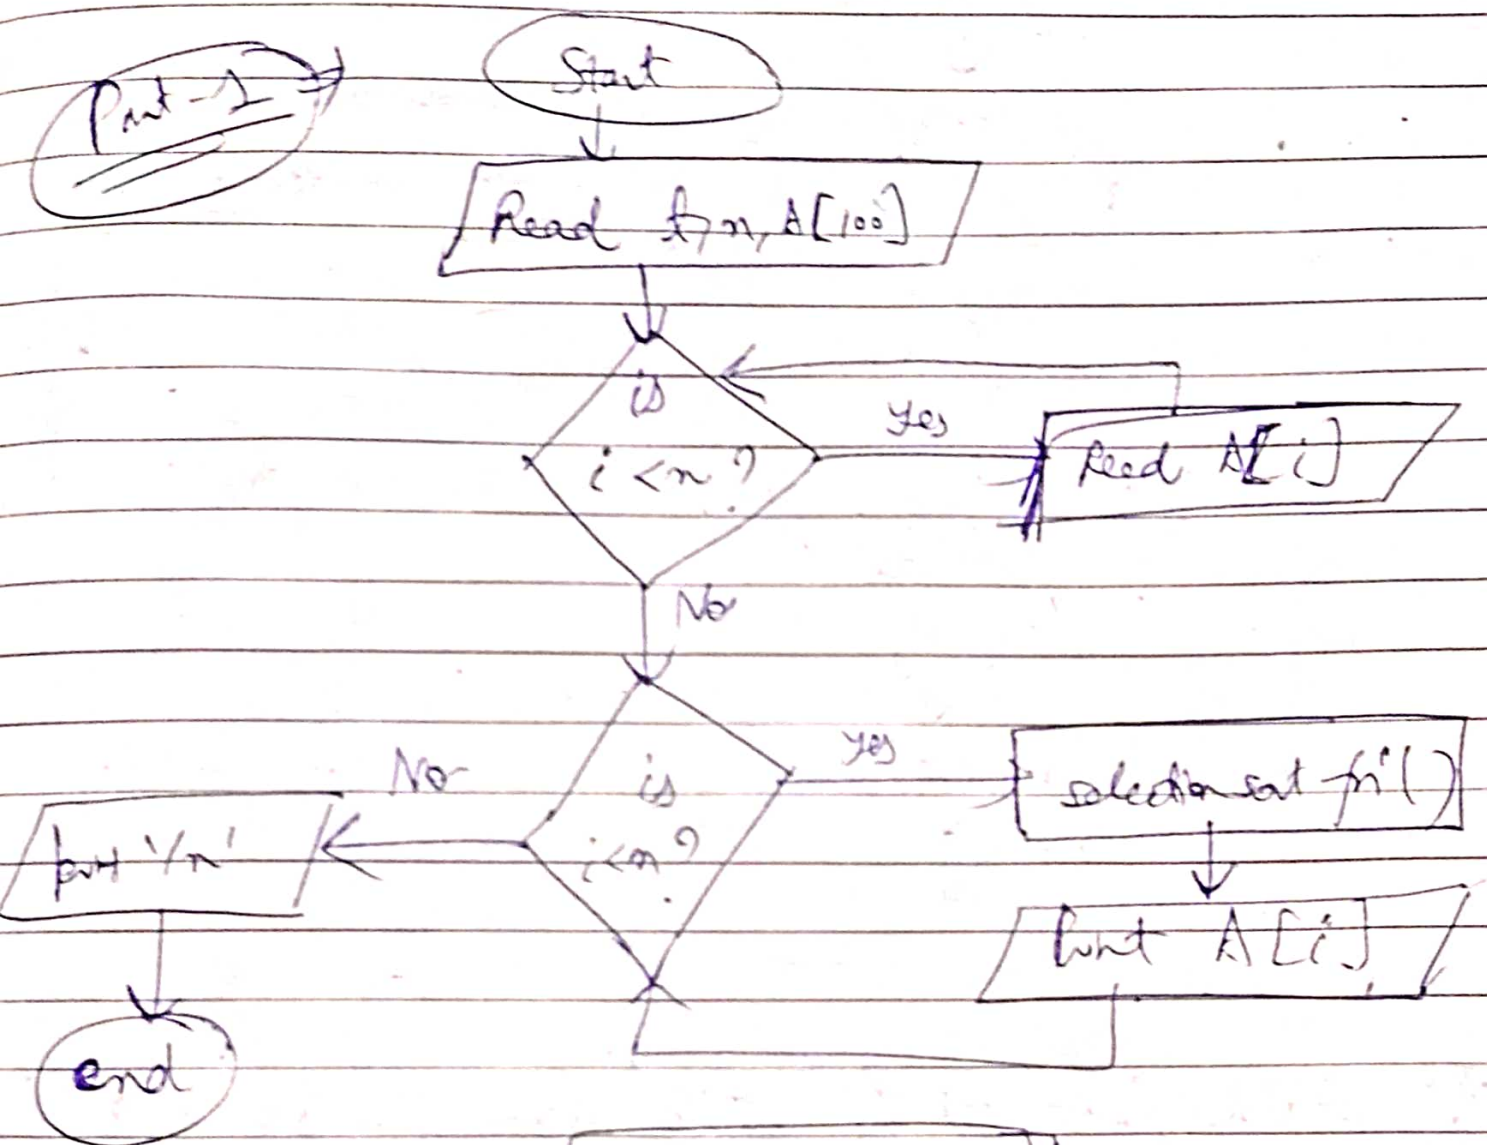 Part-1 →
Start
Read t, n, A[100]
is
i < n ?
Yes
Read A[i]
No
is
i < n ?
Yes
selection sort fn()
No
print '/n'
Print A[i]
end